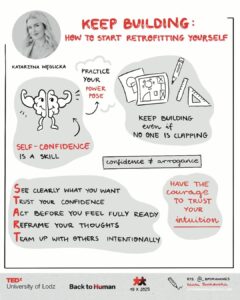 KEEP BUILDING:
HOW TO START RETROFITTING YOURSELF
KATARZYNA WĘGLICKA
PRACTICE
YOUR
POWER
POSE
SELF-CONFIDENCE
IS A SKILL
KEEP BUILDING
even if
NO ONE IS CLAPPING
confidence ≠ arrogance
SEE CLEARLY WHAT YOU WANT
TRUST YOUR CONFIDENCE
ACT BEFORE YOU FEEL FULLY READY
REFRAME YOUR THOUGHTS
TEAM UP WITH OTHERS INTENTIONALLY
HAVE THE
courage
TO TRUST
YOUR
intuition
TEDx
University of Lodz
Back to Human
18 X 2025